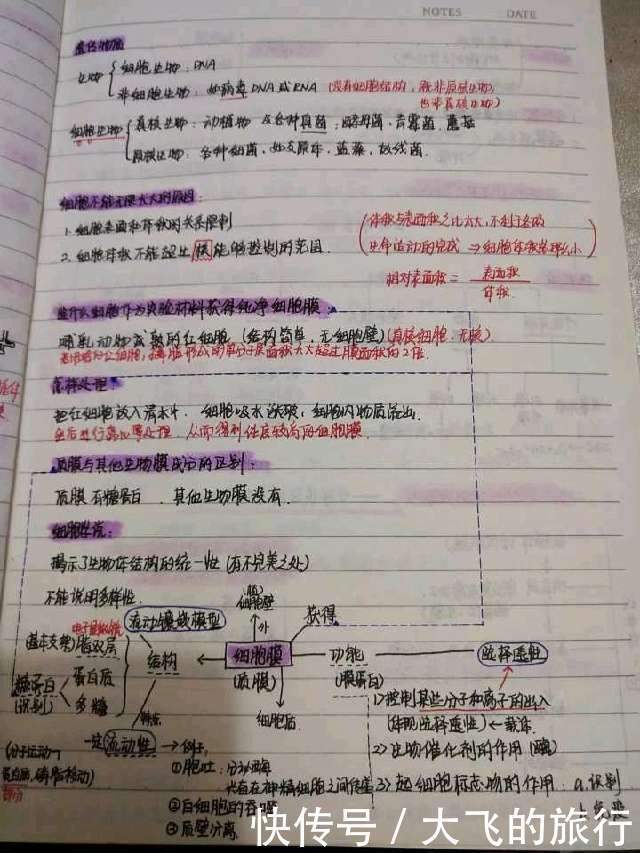 NOTES DATE
遗传物质
生物 细胞生物：DNA
非细胞生物：如病毒 DNA或RNA (没有细胞结构，既非原核生物，
也非真核生物)
细胞生物 真核生物：动植物 及各种真菌：酵母菌、青霉菌、蘑菇
原核生物：各种细菌、如支原体、蓝藻、放线菌.
细胞不能无限长大的原因：
1. 细胞表面和体积的关系限制
2. 细胞体积不能超出核能够控制的范围.
(体积与表面积之比
生命活动的完成 ⇒ 细胞体积
相对表面积 = 表面积
体积
为什么细胞作为实验材料获得纯净细胞膜
哺乳动物成熟的红细胞 (结构简单，无细胞壁) (真核细胞：无膜)
怎样处理：
把红细胞放入清水中. 细胞吸水涨破，细胞内物质流出.
质膜与其他生物膜成分的区别：
质膜有糖蛋白. 其他生物膜没有.
细胞学说：
揭示了生物体结构的统一性 (有不完美之处)
不能说明多样性.
细胞壁
流动镶嵌模型 外 获得
电子显微镜
(基本支架) 脂双层 结构 细胞膜 功能 选择透性
(质膜) (膜蛋白)
糖蛋白 蛋白质
(识别) 多糖
细胞质
1) 控制某些分子和离子的出入
(体现选择透性) ← 载体
特点
一定流动性 → 例：
2) 生物催化剂的作用 (酶)
(分子运动
①胞吐：分泌酶
蛋白质，磷脂移动)
递质在神经细胞之间传递 3) 起细胞标志物的作用：a.识别
②白细胞的吞噬
③质壁分离
快传号 / 大飞的旅行